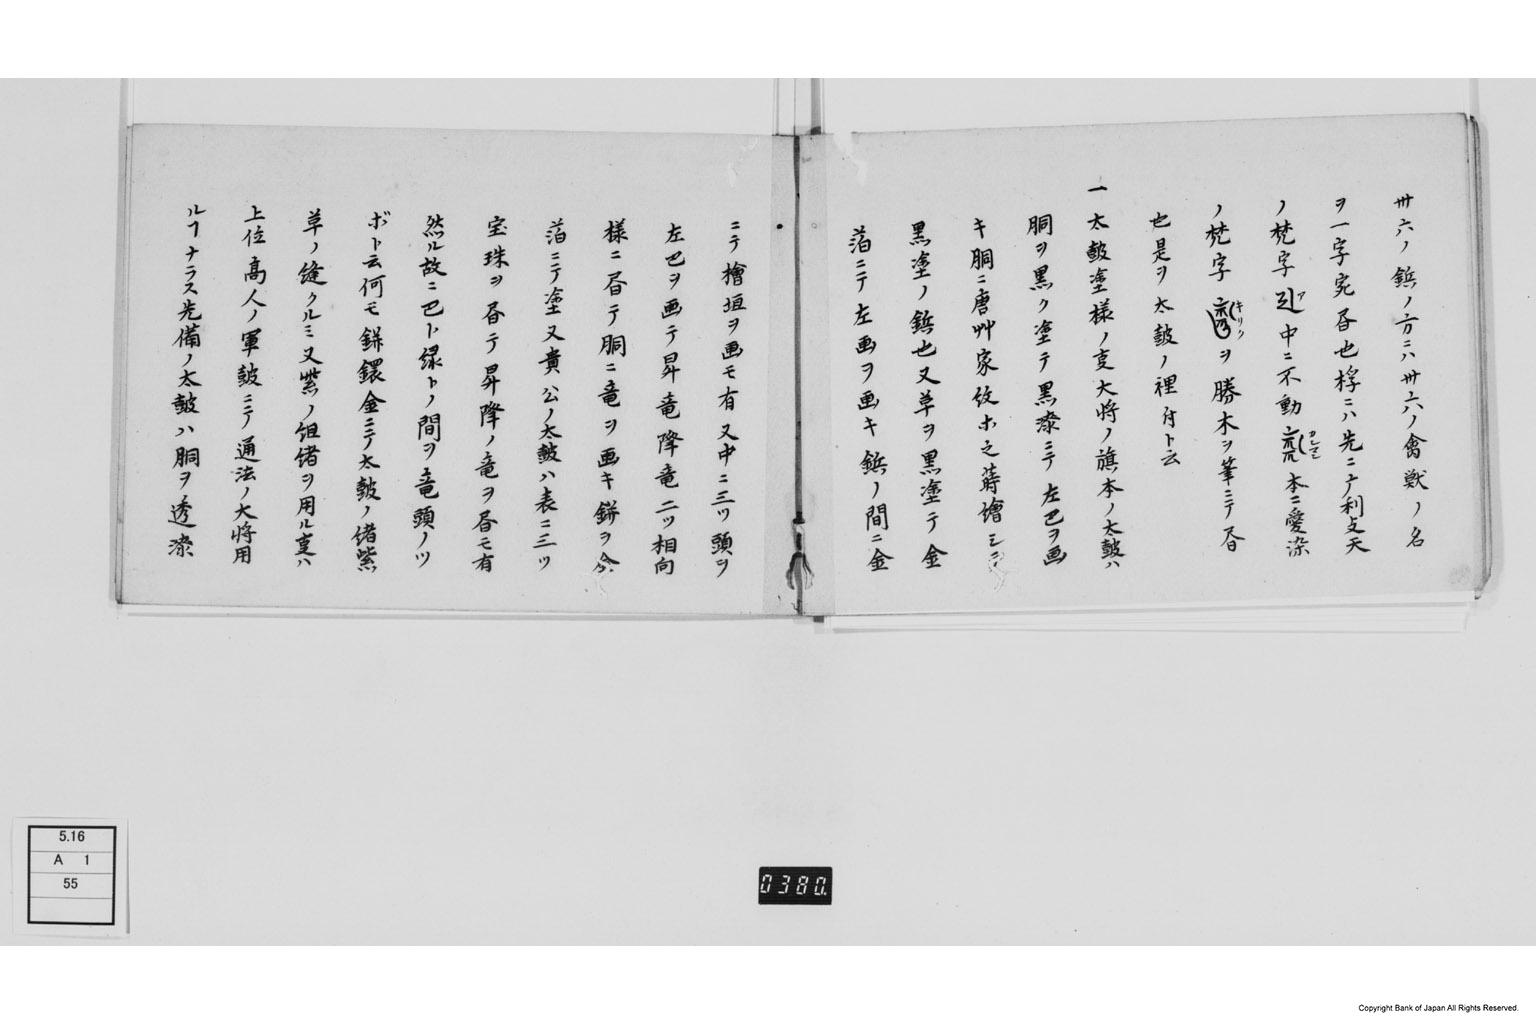 卅六ノ鋲ノ方ニハ卅六ノ禽獣ノ名
ヲ一字宛昼也桴ニハ先ニ广利支天
ノ梵字 ア 中ニ不動 カンマン 本ニ愛染
ノ梵字 キリク ヲ勝木ヲ筆ニテ昼
也是ヲ太皷ノ裡付ト云
一太皷塗様ノ亨大将ノ旗本ノ太皷ハ
胴ヲ黒ク塗テ黒漆ニテ左巴ヲ画
キ胴ニ唐艸家紋ホ之蒔繪シテ
黒塗ノ鋲也又草ヲ黒塗テ金
箔ニテ左画ヲ画キ鋲ノ間ニ金
ニテ檜垣ヲ画モ有又中ニ三ツ頭ヲ
左巴ヲ画テ昇竜降竜二ツ相向
様ニ昼テ胴ニ竜ヲ画キ鉼ヲ金
箔ニテ塗又貴公ノ太皷ハ表ニ三ツ
宝珠ヲ昼テ昇降ノ竜ヲ昼モ有
然ル故ニ巴ト縁トノ間ヲ竜頭ノツ
ボト云何モ鉼鐶金ニテ太皷ノ緒紫
草ノ縫クルミ又紫ノ組緒ヲ用ル亨ハ
上位高人ノ軍皷ニテ通法ノ大将用
ルヿナラス先備ノ太皷ハ胴ヲ透漆
5.16
A 1
55
0380
Copyright Bank of Japan All Rights Reserved.